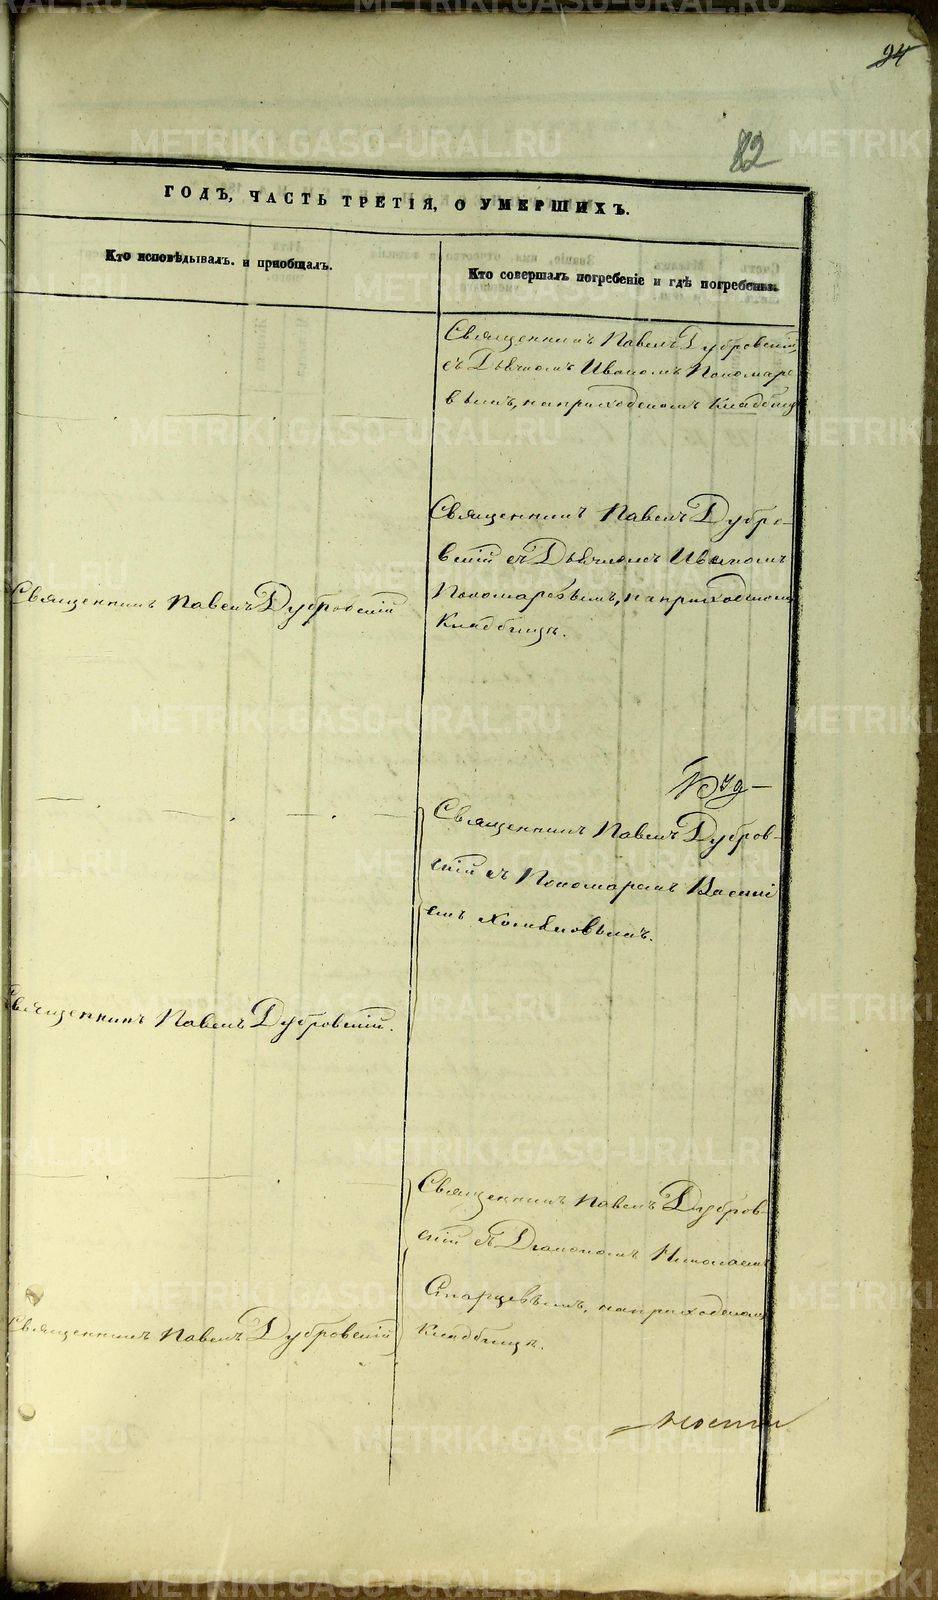 94
82
ГОДЪ, ЧАСТЬ ТРЕТІЯ, О УМЕРШИХЪ.
Кто исповѣдывалъ. и пріобщалъ.
Кто совершалъ погребеніе и гдѣ погребены.
Священникъ Павелъ Дубровскій,
съ Дьячкомъ Иваномъ Пономаре
вымъ, на приходскомъ Кладбищѣ
Священникъ Павелъ Дубро-
вскій съ Дьячкомъ Иваномъ
Пономаревымъ, на приходскомъ
Кладбищѣ.
Священникъ Павелъ Дубровскій
Священникъ Павелъ Дубров-
скій съ Пономаремъ Васені
емъ
Священникъ Павелъ Дубровскій.
Священникъ Павелъ Дубров-
скій съ Діакономъ Николаемъ
Старцевымъ, на приходскомъ
Кладбищѣ.
Священникъ Павелъ Дубровскій
METRIKI.GASO-URAL.RU